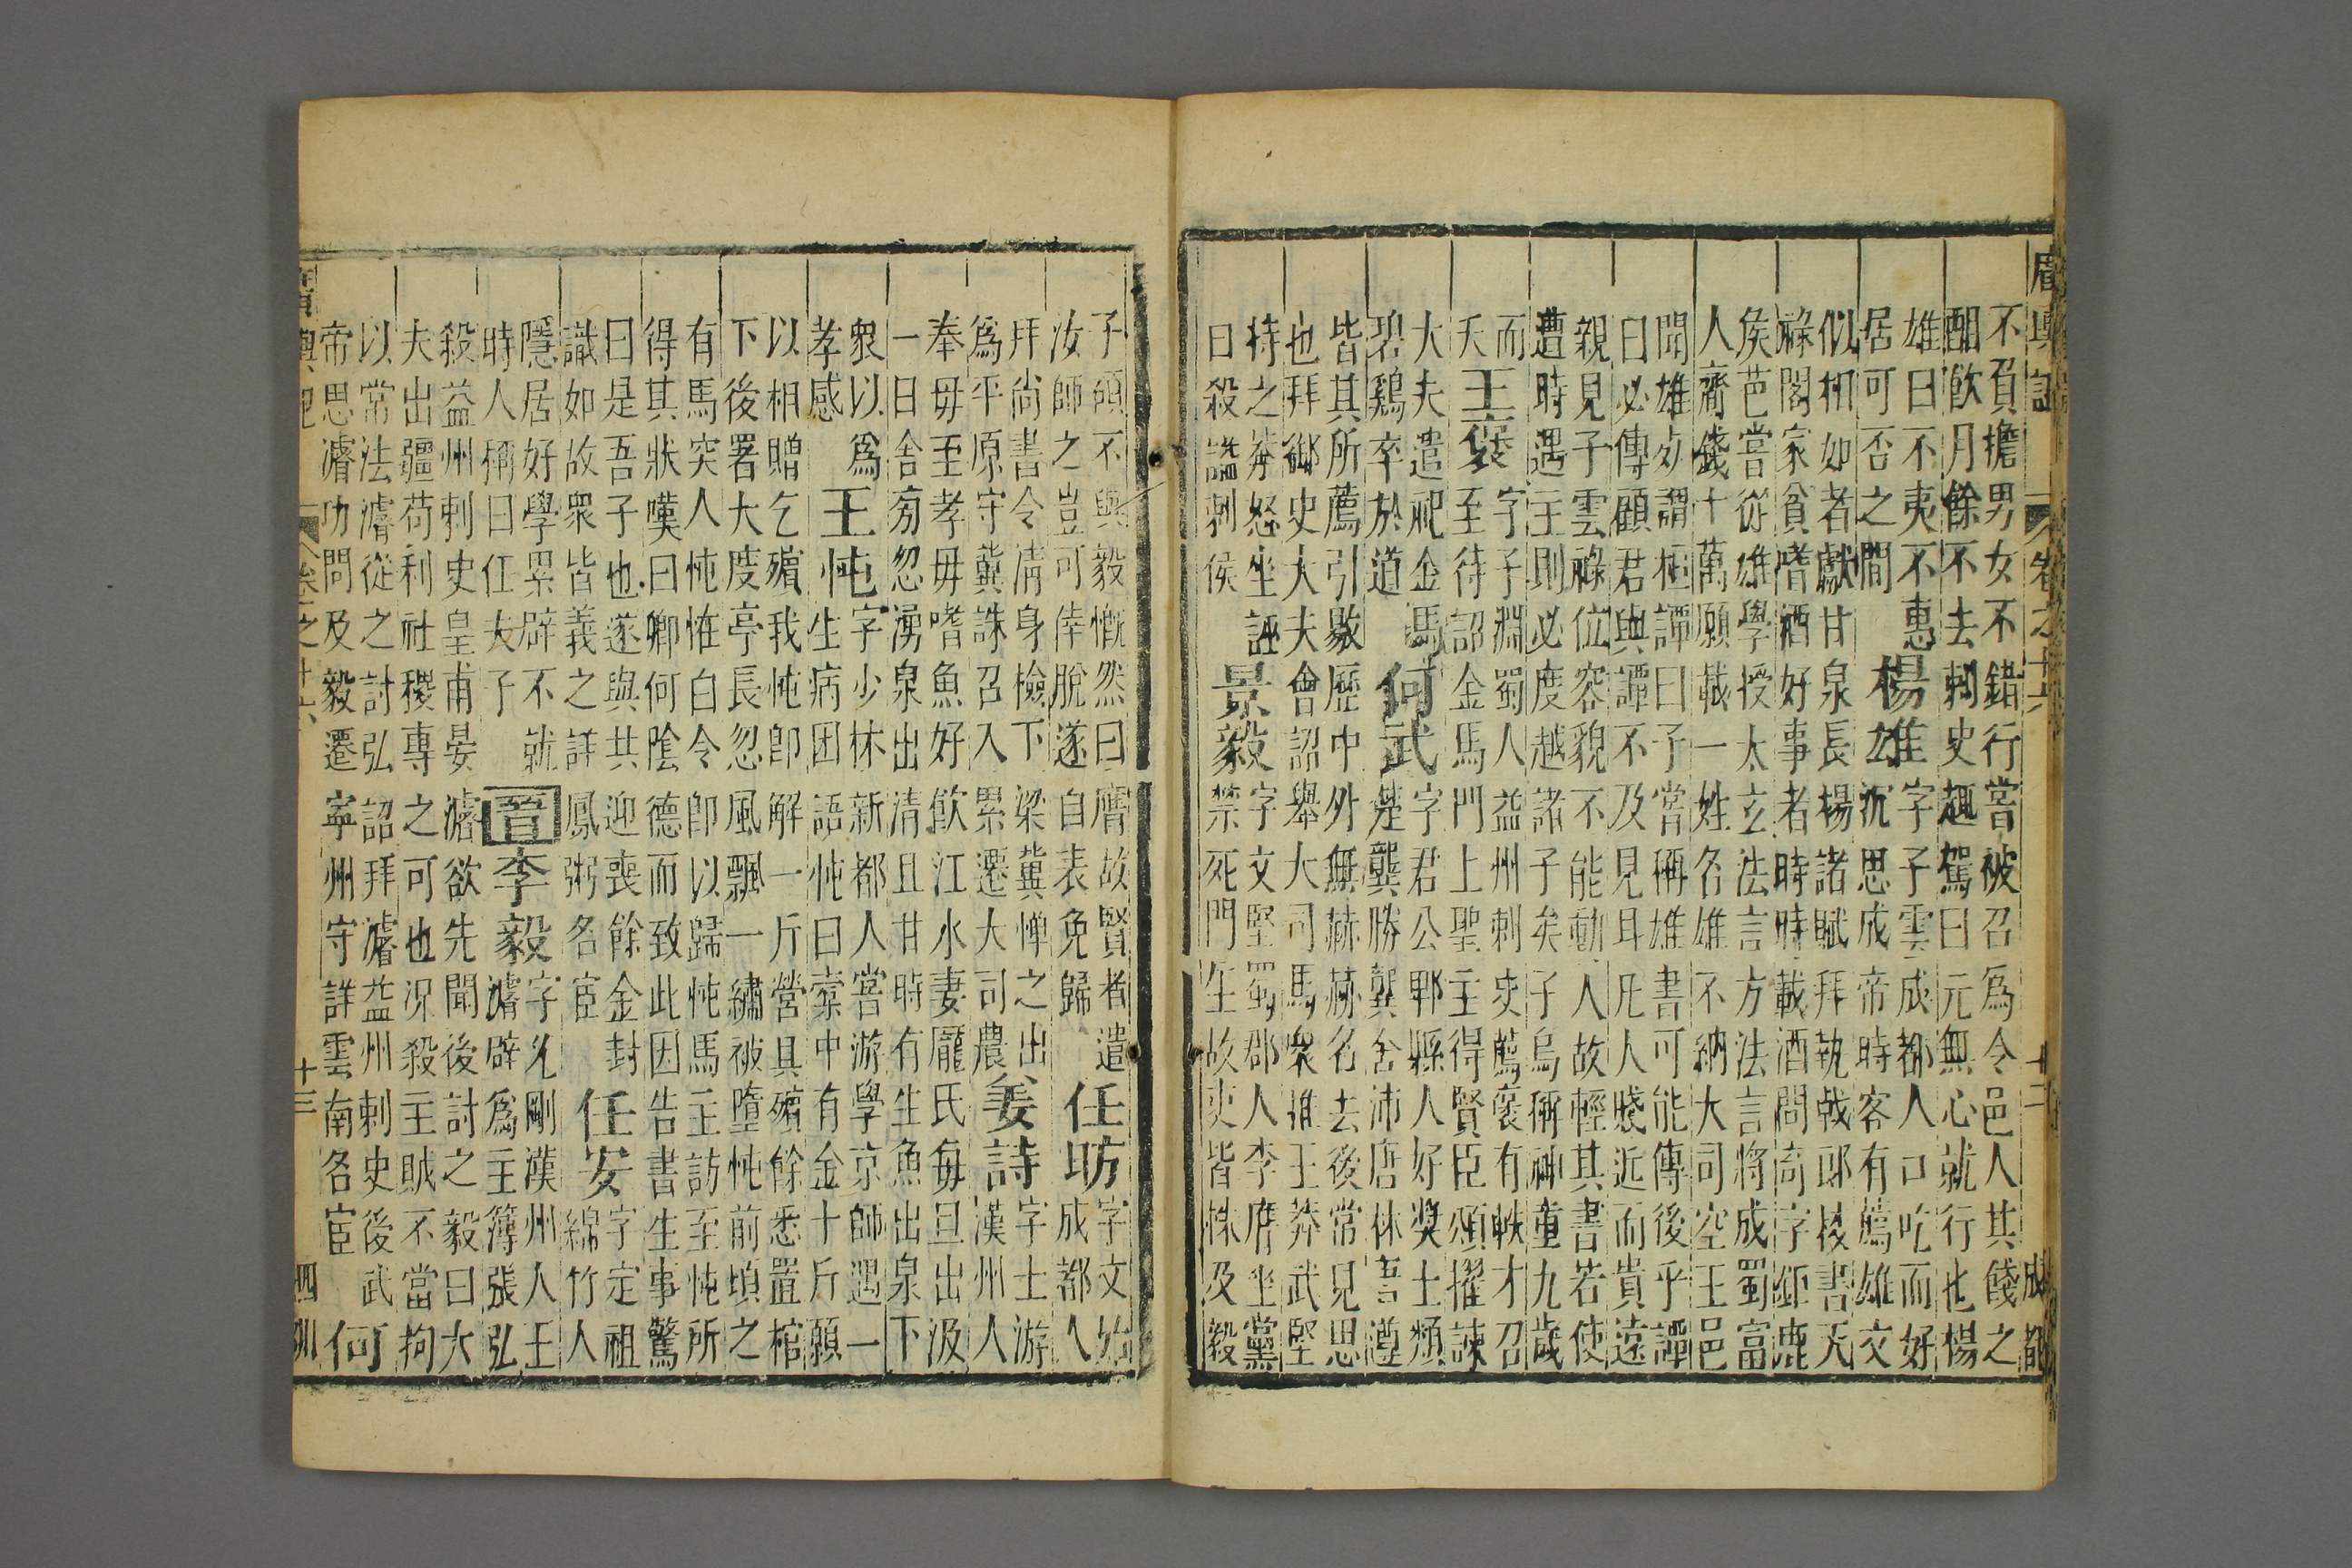 廣輿記 卷之十六 十二 成都
不負擔男女不錯行嘗被召為令邑人其餞之
酣飲月餘不去刺史趣駕曰元無心就行也楊
雄曰不夷不惠
居可否之間
楊雄
字子雲成都人口吃而好
沉思成帝時客有薦雄文
似相如者獻甘泉長楊諸賦拜執戟郎校書天
祿閣家貧嗜酒好事者時時載酒問奇字鉅鹿
侯芭嘗從雄學授太玄法言方法言將成蜀富
人齎錢十萬願載一姓名雄不納大司空王邑
聞雄死謂桓譚曰子嘗稱雄書可能傳後乎譚
曰必傳顧君與譚不及見耳凡人賤近而貴遠
親見子雲祿位容貌不能動人故輕其書若使
遭時遇主則必度越諸子矣子烏稱神童九歲
而
夭
王褒
字子淵蜀人益州刺史薦褒有軼才召
至待詔金馬門上聖主得賢臣頌擢諫
大夫遣祀金馬
碧鷄卒於道
何武
字君公郫縣人好獎士類
楚龔勝龔舍沛唐林唐遵
皆其所薦引敭歷中外無赫赫名去後常見思
也拜御史大夫會詔舉大司馬衆推王莽武堅
持之莽怒坐誣
曰殺諡刺侯
景毅
字文堅蜀郡人李膺坐黨
禁死門生故吏皆株及毅
子頎不與毅慨然曰膺故賢者遣
汝師之豈可倖脫遂自表免歸
任昉
字文始
成都人
拜尚書令清身檢下梁冀憚之出
為平原守冀誅召入累遷大司農
姜詩
字士游
漢州人
奉毋至孝毋嗜魚好飲江水妻龐氏每旦出汲
一日舍旁忽湧泉出清且甘時有生魚出泉下
衆以為
孝感
王忳
字少林新都人嘗游學京師遇一
生病困語忳曰橐中有金十斤願
以相贈乞殯我忳卽解一斤營具殯餘悉置棺
下後署大度亭長忽風飄一繡被墮忳前頃之
有馬突人忳惟白令卽以歸忳馬主訪至忳所
得其狀嘆曰卿何陰德而致此因告書生事驚
曰是吾子也遂與共迎喪餘金封
識如故衆皆義之詳鳳粥名宦
任安
字定祖
綿竹人
隱居好學累辟不就
時人稱曰任夫子
晉
李毅
字允剛漢州人王
濬辟為主簿張弘
殺益州刺史皇甫晏濬欲先聞後討之毅曰大
夫出疆苟利社稷專之可也況殺主賊不當拘
以常法濬從之討弘詔拜濬益州刺史後武
帝思濬功問及毅遷寧州守詳雲南名宦
何
廣輿記 卷之十六 十三 四川